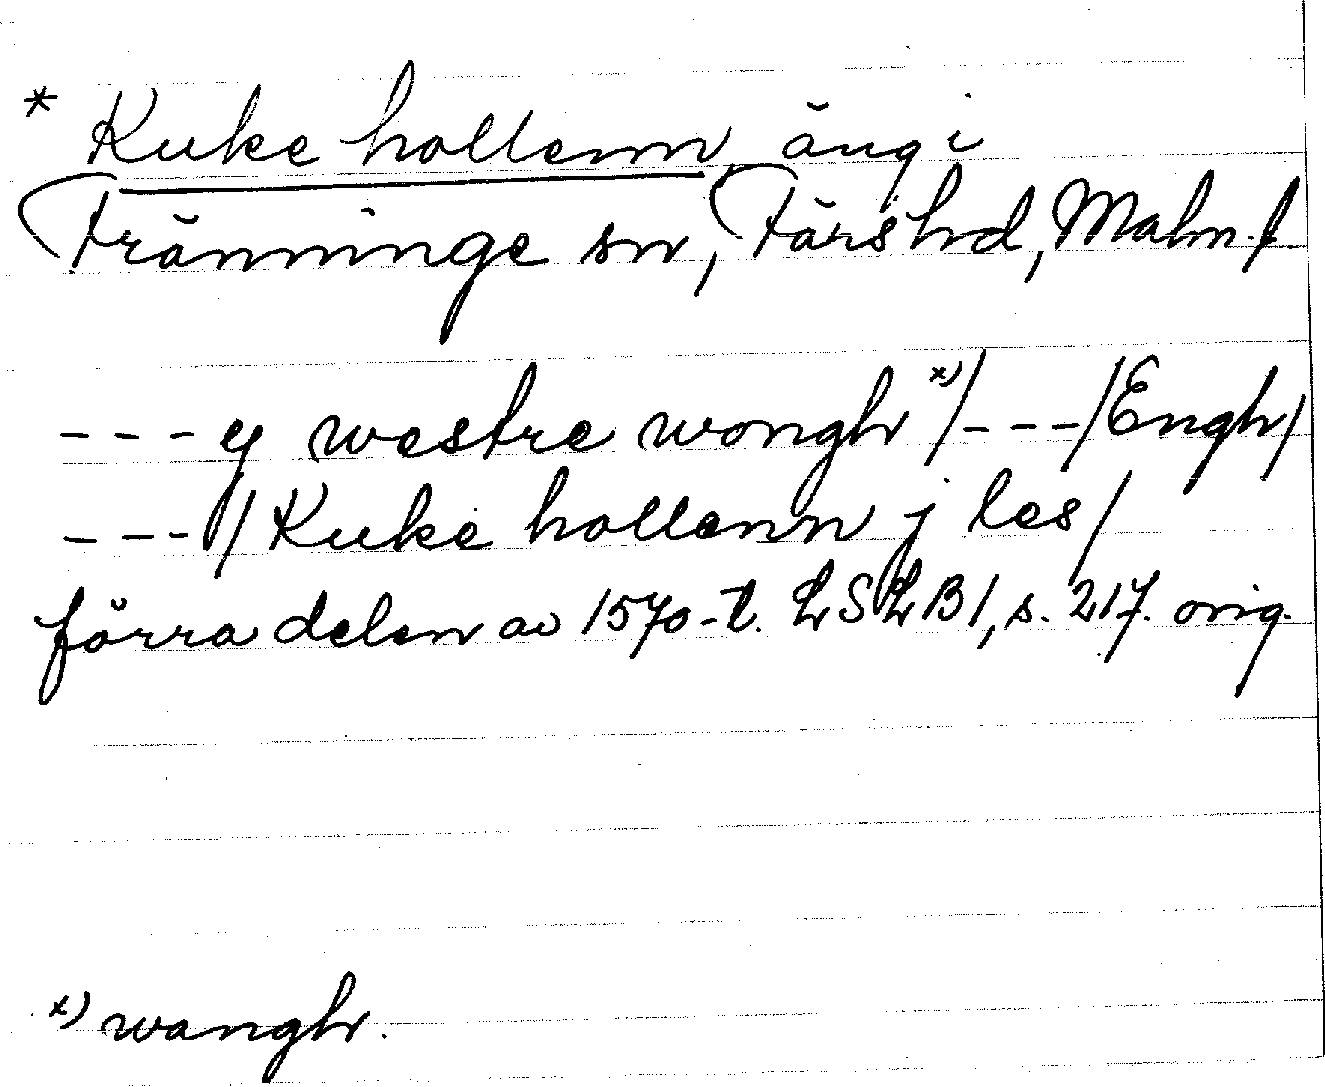 * Kuke hollenn, äng i
Fränninge sn, Färs hd, Malm. l
- - - y westre wongh x) / - - - / Engh /
- - - / Kuke hollenn j les /
förra delen av 1570-t. LSLB 1, s. 217. orig.
x) wangh.